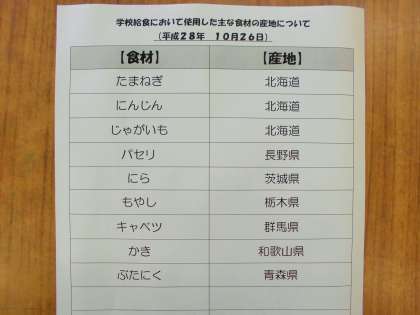 学校給食において使用した主な食材の産地について
（平成２８年　１０月２６日）
【食材】　【産地】
たまねぎ　北海道
にんじん　北海道
じゃがいも　北海道
パセリ　長野県
にら　茨城県
もやし　栃木県
キャベツ　群馬県
かき　和歌山県
ぶたにく　青森県